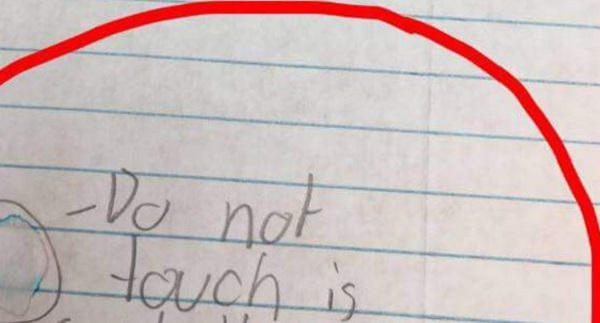 -Do not
touch is